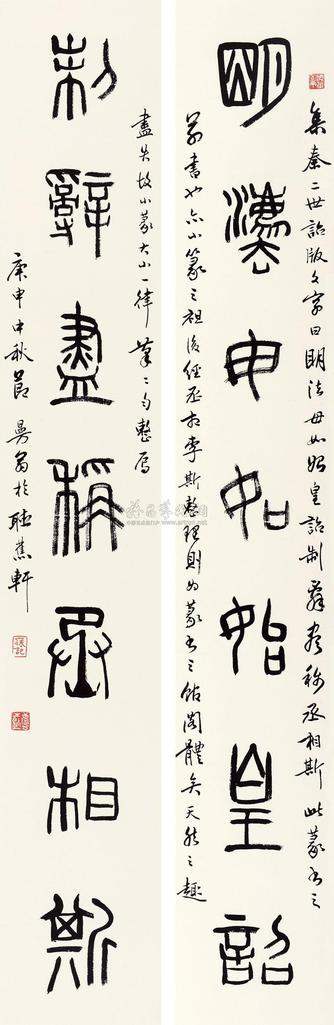 明灋毋如始皇詔
集秦二世詔版文字曰明法毋如始皇詔制辭盡稱丞相斯此篆書之
草書也亦小篆之祖後經丞相李斯整理則為篆書之館閣體矣天然之趣
制辭盡稱丞相斯
盡失故小篆大小一律筆筆勻整焉
庚申中秋節曼翁於聽蕉軒